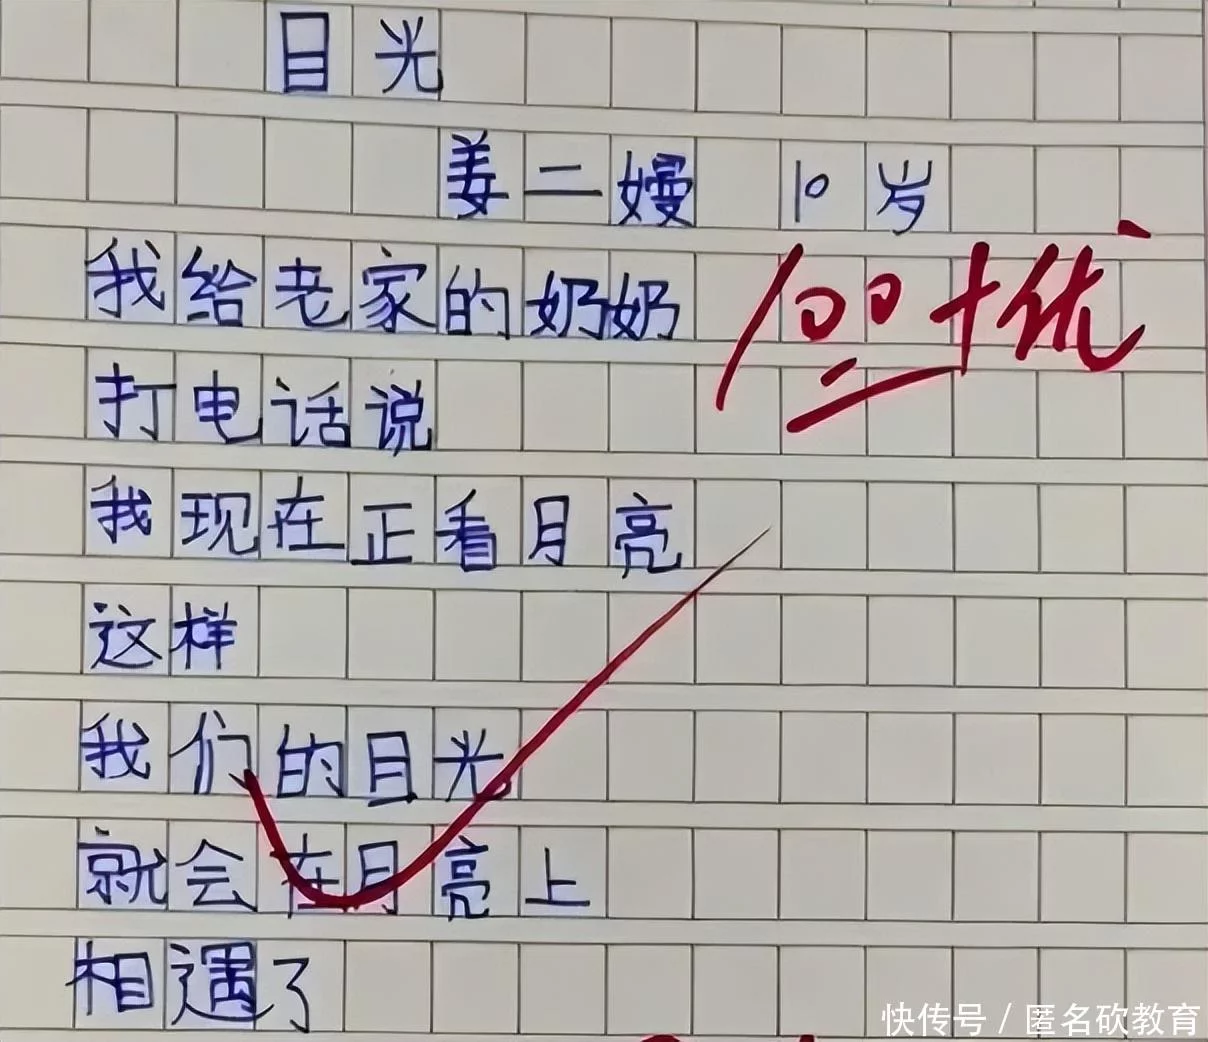 目光
姜二嫚 10岁
我给老家的奶奶
100+优
打电话说
我现在正看月亮
这样
我们的目光
就会在月亮上
相遇了
快传号/匿名砍教育